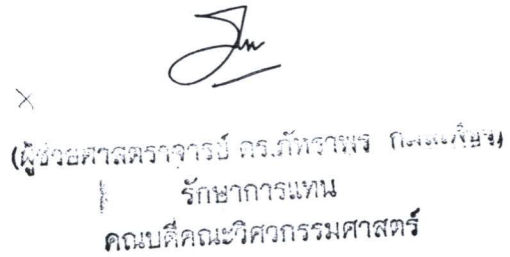 (ผู้ช่วยศาสตราจารย์ ดร.ภัทราพร
รักษาการแทน
คณบดีคณะวิศวกรรมศาสตร์